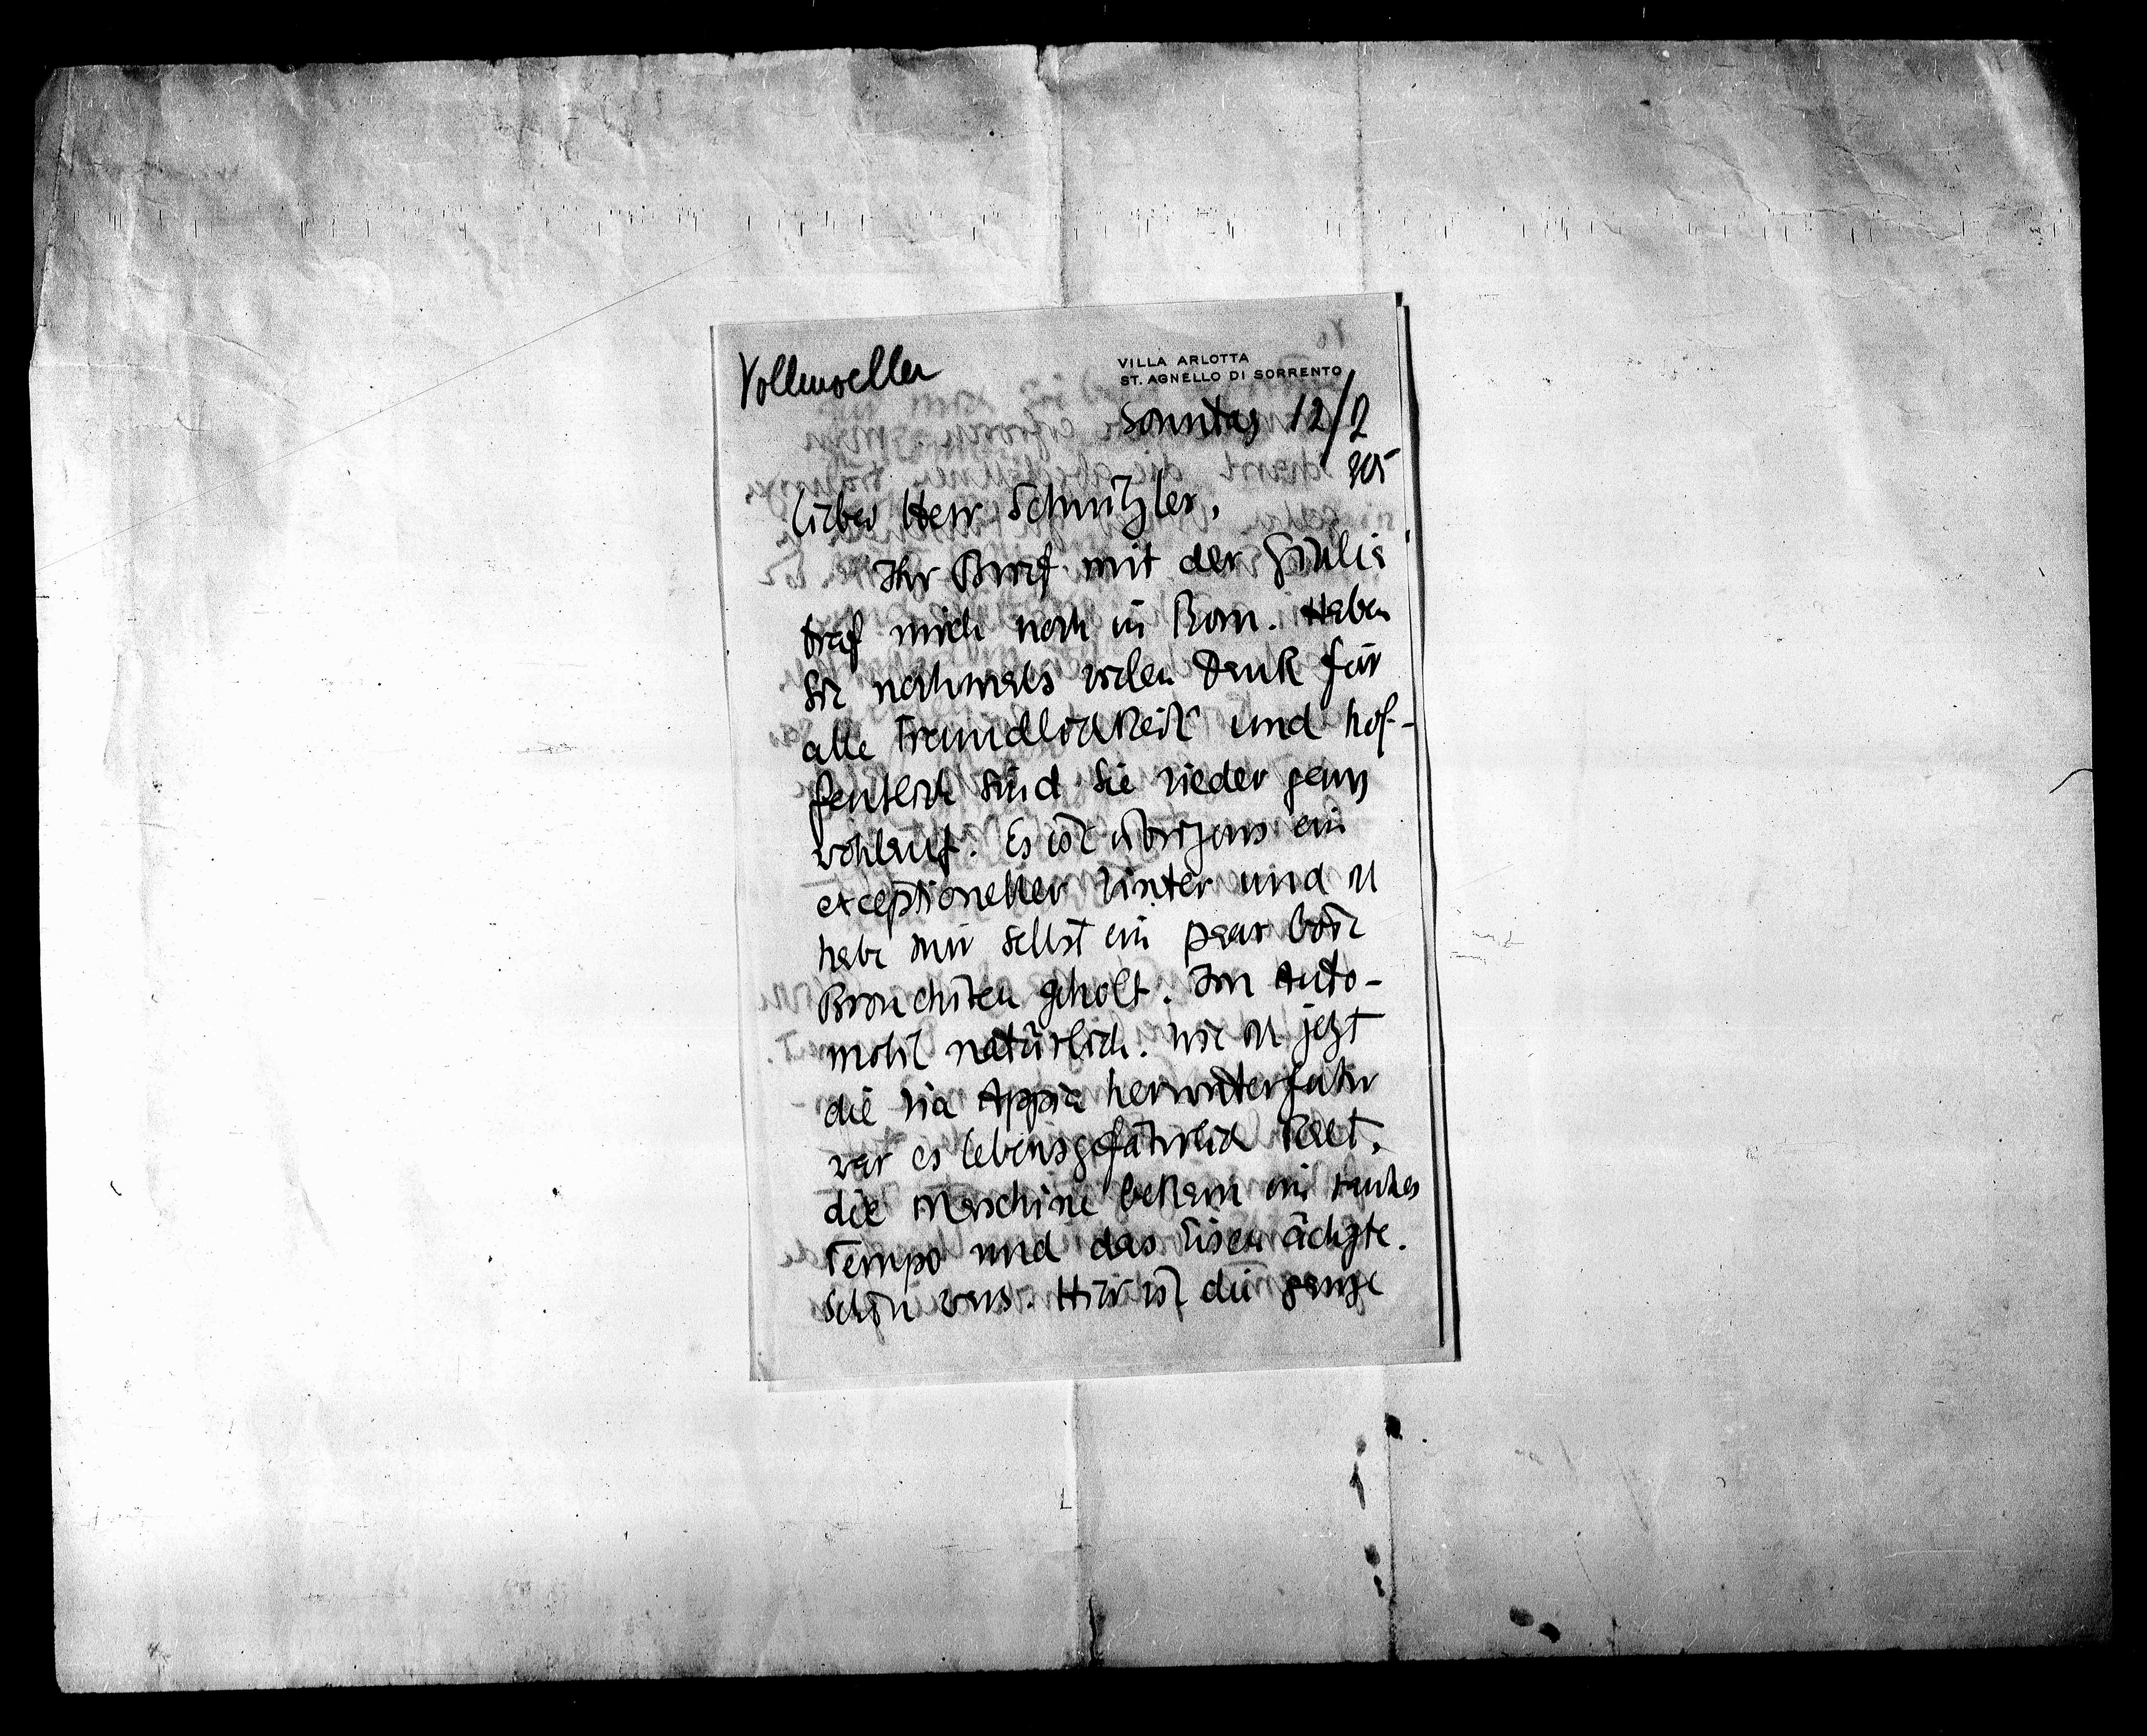 Vollmoeller
VILLA ARLOTTA
ST. AGNELLO DI SORRENTO
Sonntag 12/2
905
Lieber Herr Schnitzler,
Ihr Brief mit der
traf mich noch in Rom. Haben
Sie nochmals vielen Dank für
alle Freundlichkeit und hof-
fentlich sind Sie wieder ganz
wohlauf. Es ist übrigens ein
exceptioneller Winter und ich
habe mir selbst ein paar böse
Bronchiten geholt. Im Auto-
mobil natürlich. Wie ich jetzt
die Via Appia herunterfuhr
war es lebensgefährlich kalt,
die Maschine bekam ein
Tempo und das Eisen ächzte.
Schön wars. Hier ist die ganze